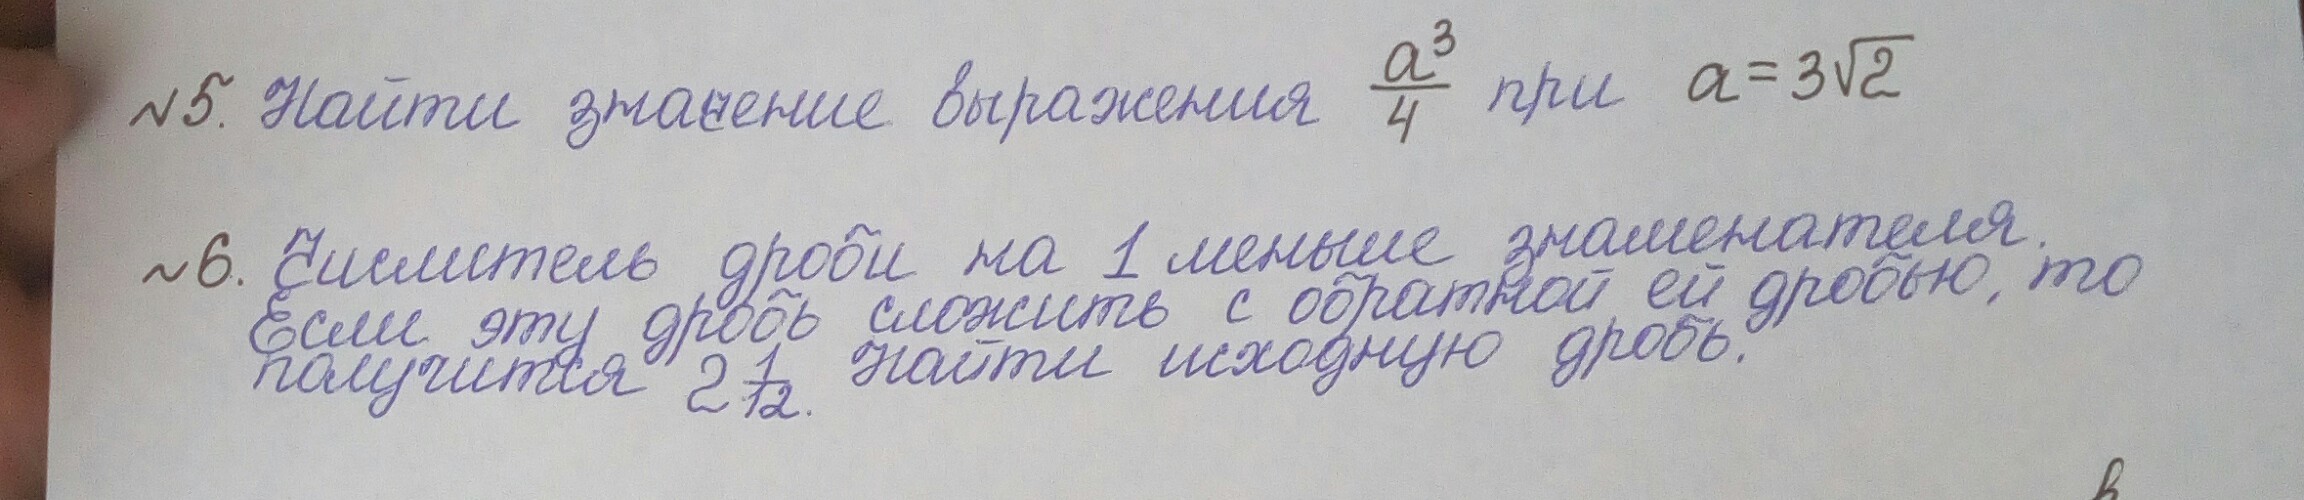 №5. Найти значение выражения a³/4 при a=3√2
№6. Числитель дроби на 1 меньше знаменателя.
Если эту дробь сложить с обратной ей дробью, то
получится 2 1/12. Найти исходную дробь.